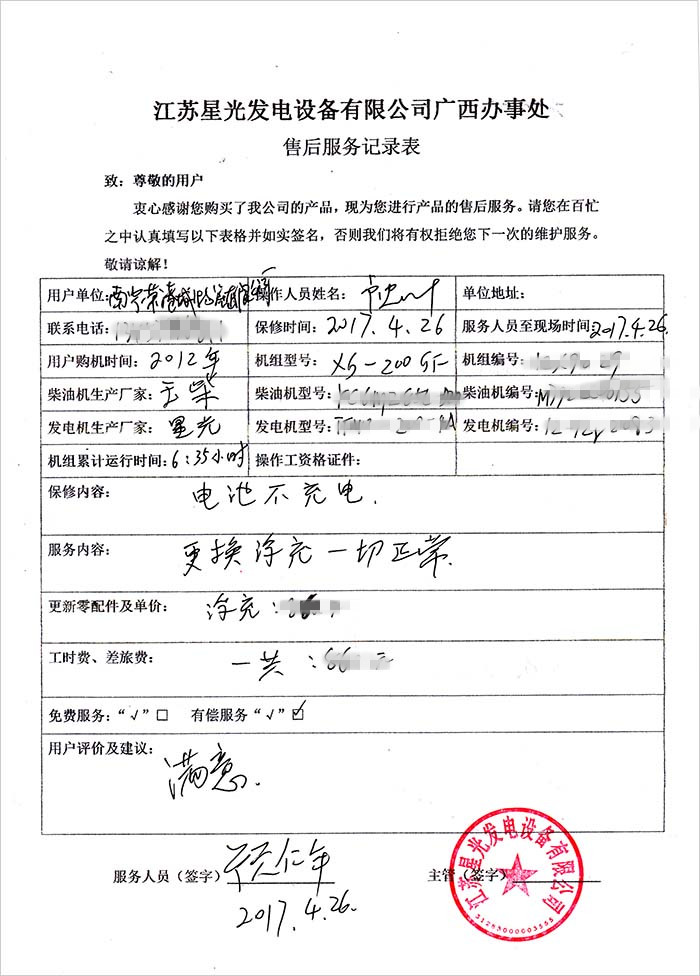 江苏星光发电设备有限公司广西办事处
售后服务记录表
致：尊敬的用户
衷心感谢您购买了我公司的产品，现为您进行产品的售后服务。请您在百忙
之中认真填写以下表格并如实签名，否则我们将有权拒绝您下一次的维护服务。
敬请谅解！
用户单位： 操作人员姓名： 单位地址：
联系电话： 保修时间：2017.4.26 服务人员至现场时间2017.4.26.
用户购机时间：2012年 机组型号：XG-200GF 机组编号：
柴油机生产厂家：玉柴 柴油机型号： 柴油机编号：
发电机生产厂家：星光 发电机型号： 发电机编号：
机组累计运行时间：6:35小时 操作工资格证件：
保修内容： 电池不充电.
服务内容： 更换浮充一切正常.
更新零配件及单价： 浮充：
工时费、差旅费： 一共：
免费服务：“√”□ 有偿服务“√”☑
用户评价及建议： 满意.
服务人员（签字） 主管（签字）
2017.4.26.
江苏星光发电设备有限公司